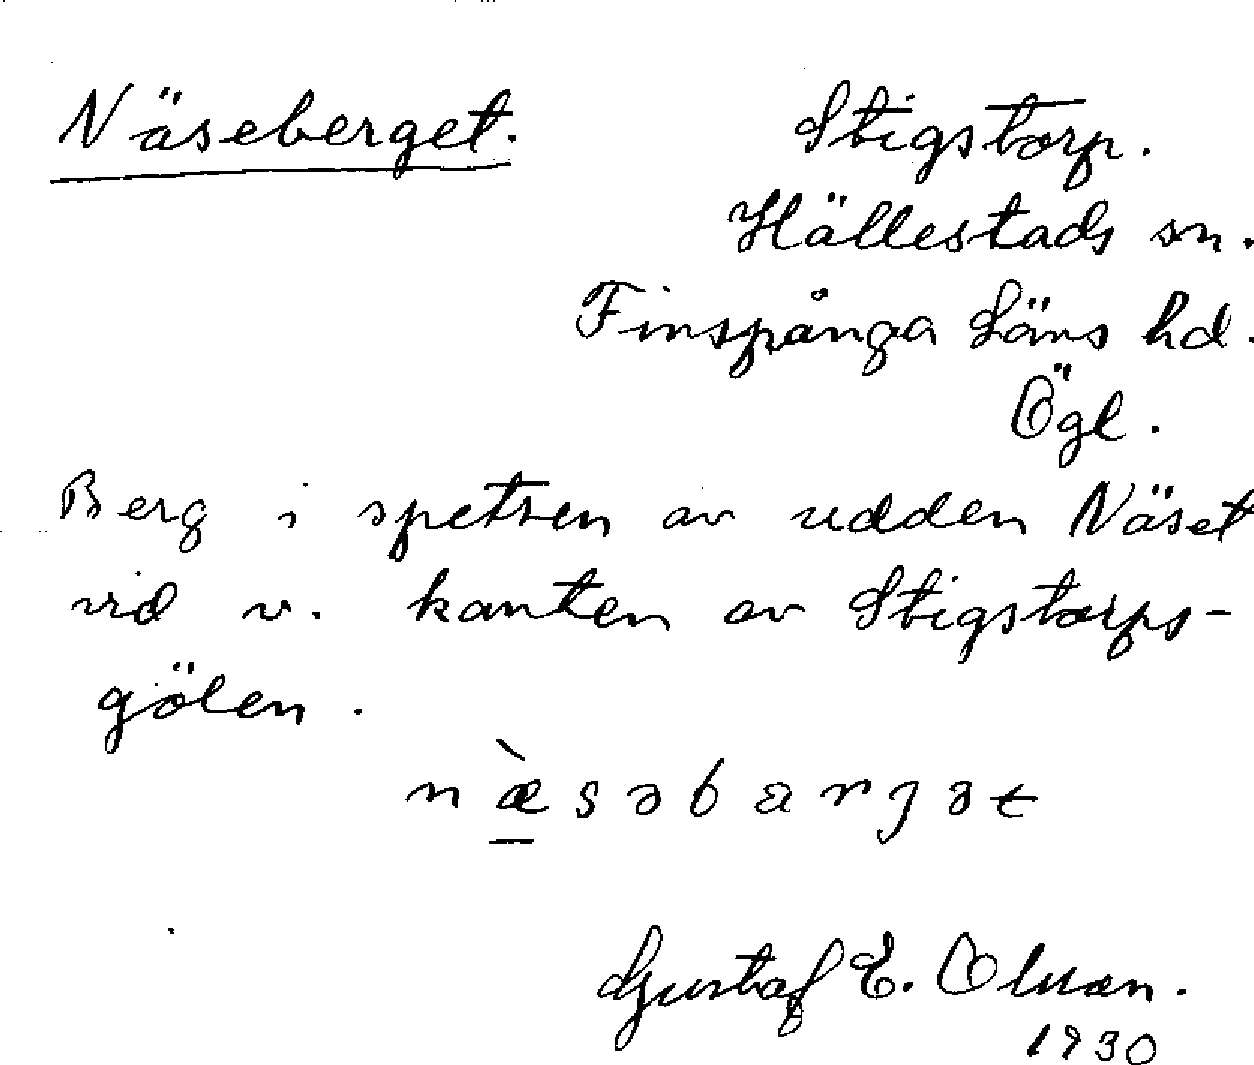 Näseberget.
Stigstorp.
Hällestads sn.
Finspånga Läns hd.
Ögl.
Berg i spetsen av udden Näset
vid v. kanten av Stigstorps-
gölen.
næ̱̀səbarjət
Gustaf E. Olsson.
1930